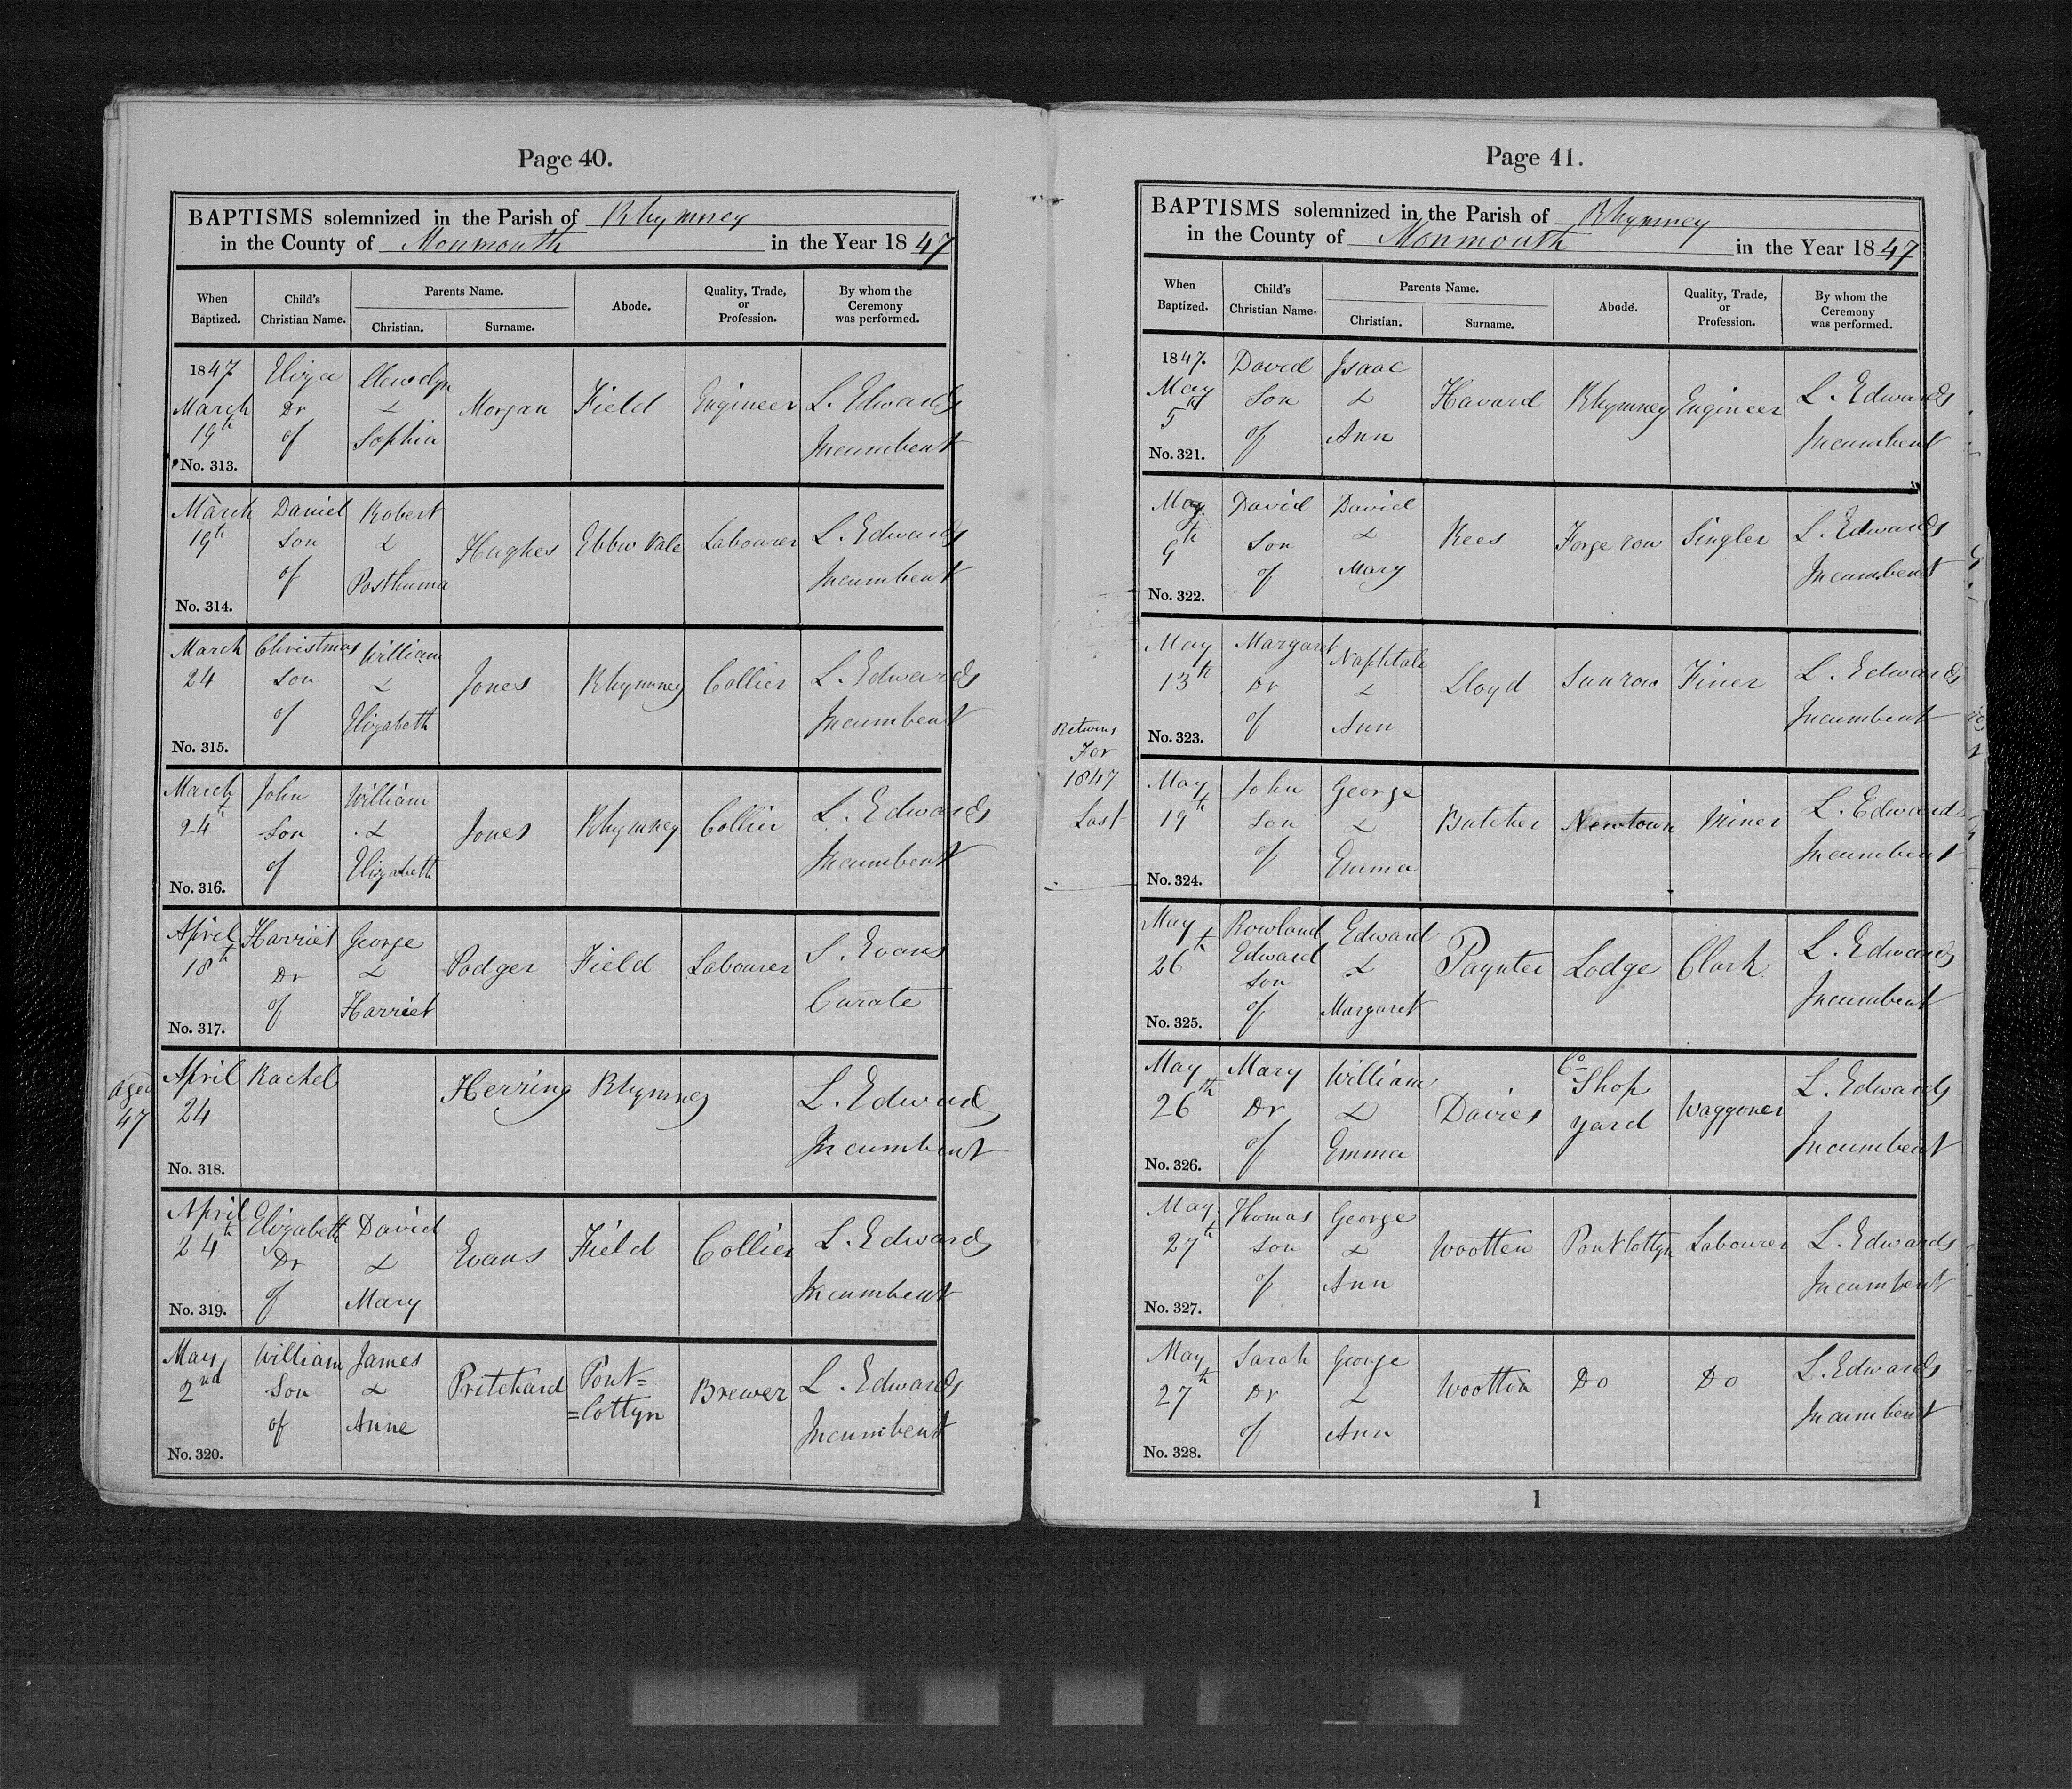 Page 40.
BAPTISMS solemnized in the Parish of Rhymney
in the County of Monmouth in the Year 1847
When Baptized. Child's Christian Name. Parents Name. Christian. Surname. Abode. Quality, Trade, or Profession. By whom the Ceremony was performed.
1847 March 19th No. 313. Eliza Dr of Llewelyn & Sophia Morgan Field Engineer L. Edwards Incumbent
March 19th No. 314. Daniel Son of Robert & Posthuma Hughes Ebbw Vale Labourer L. Edwards Incumbent
March 24 No. 315. Christmas Son of William & Elizabeth Jones Rhymney Collier L. Edwards Incumbent
March 24th No. 316. John Son of William & Elizabeth Jones Rhymney Collier L. Edwards Incumbent
April 18th No. 317. Harriet Dr of George & Harriet Podger Field Labourer S. Evans Curate
aged 47 April 24 No. 318. Rachel Herring Rhymney L. Edwards Incumbent
April 24th No. 319. Elizabeth Dr of David & Mary Evans Field Collier L. Edwards Incumbent
May 2nd No. 320. William Son of James & Anne Pritchard Pont= =lottyn Brewer L. Edwards Incumbent
Page 41.
BAPTISMS solemnized in the Parish of Rhymney
in the County of Monmouth in the Year 1847
When Baptized. Child's Christian Name. Parents Name. Christian. Surname. Abode. Quality, Trade, or Profession. By whom the Ceremony was performed.
1847. May 5th No. 321. David Son of Isaac & Ann Havard Rhymney Engineer L. Edwards Incumbent
May 9th No. 322. David Son of David & Mary Rees Forge row Singler L. Edwards Incumbent
May 13th No. 323. Margaret Dr of Naphtali & Ann Lloyd Sun row Finer L. Edwards Incumbent
Returns For 1847 Last
May 19th No. 324. John Son of George & Emma Butcher Newtown Miner L. Edwards Incumbent
May 26th No. 325. Rowland Edward Son of Edward & Margaret Paynter Lodge Clark L. Edwards Incumbent
May 26th No. 326. Mary Dr of William & Emma Davies Co Shop yard Waggoner L. Edwards Incumbent
May 27th No. 327. Thomas Son of George & Ann Wootten Pontlottyn Labourer L. Edwards Incumbent
May 27th No. 328. Sarah Dr of George & Ann Wootton Do Do L. Edwards Incumbent
1